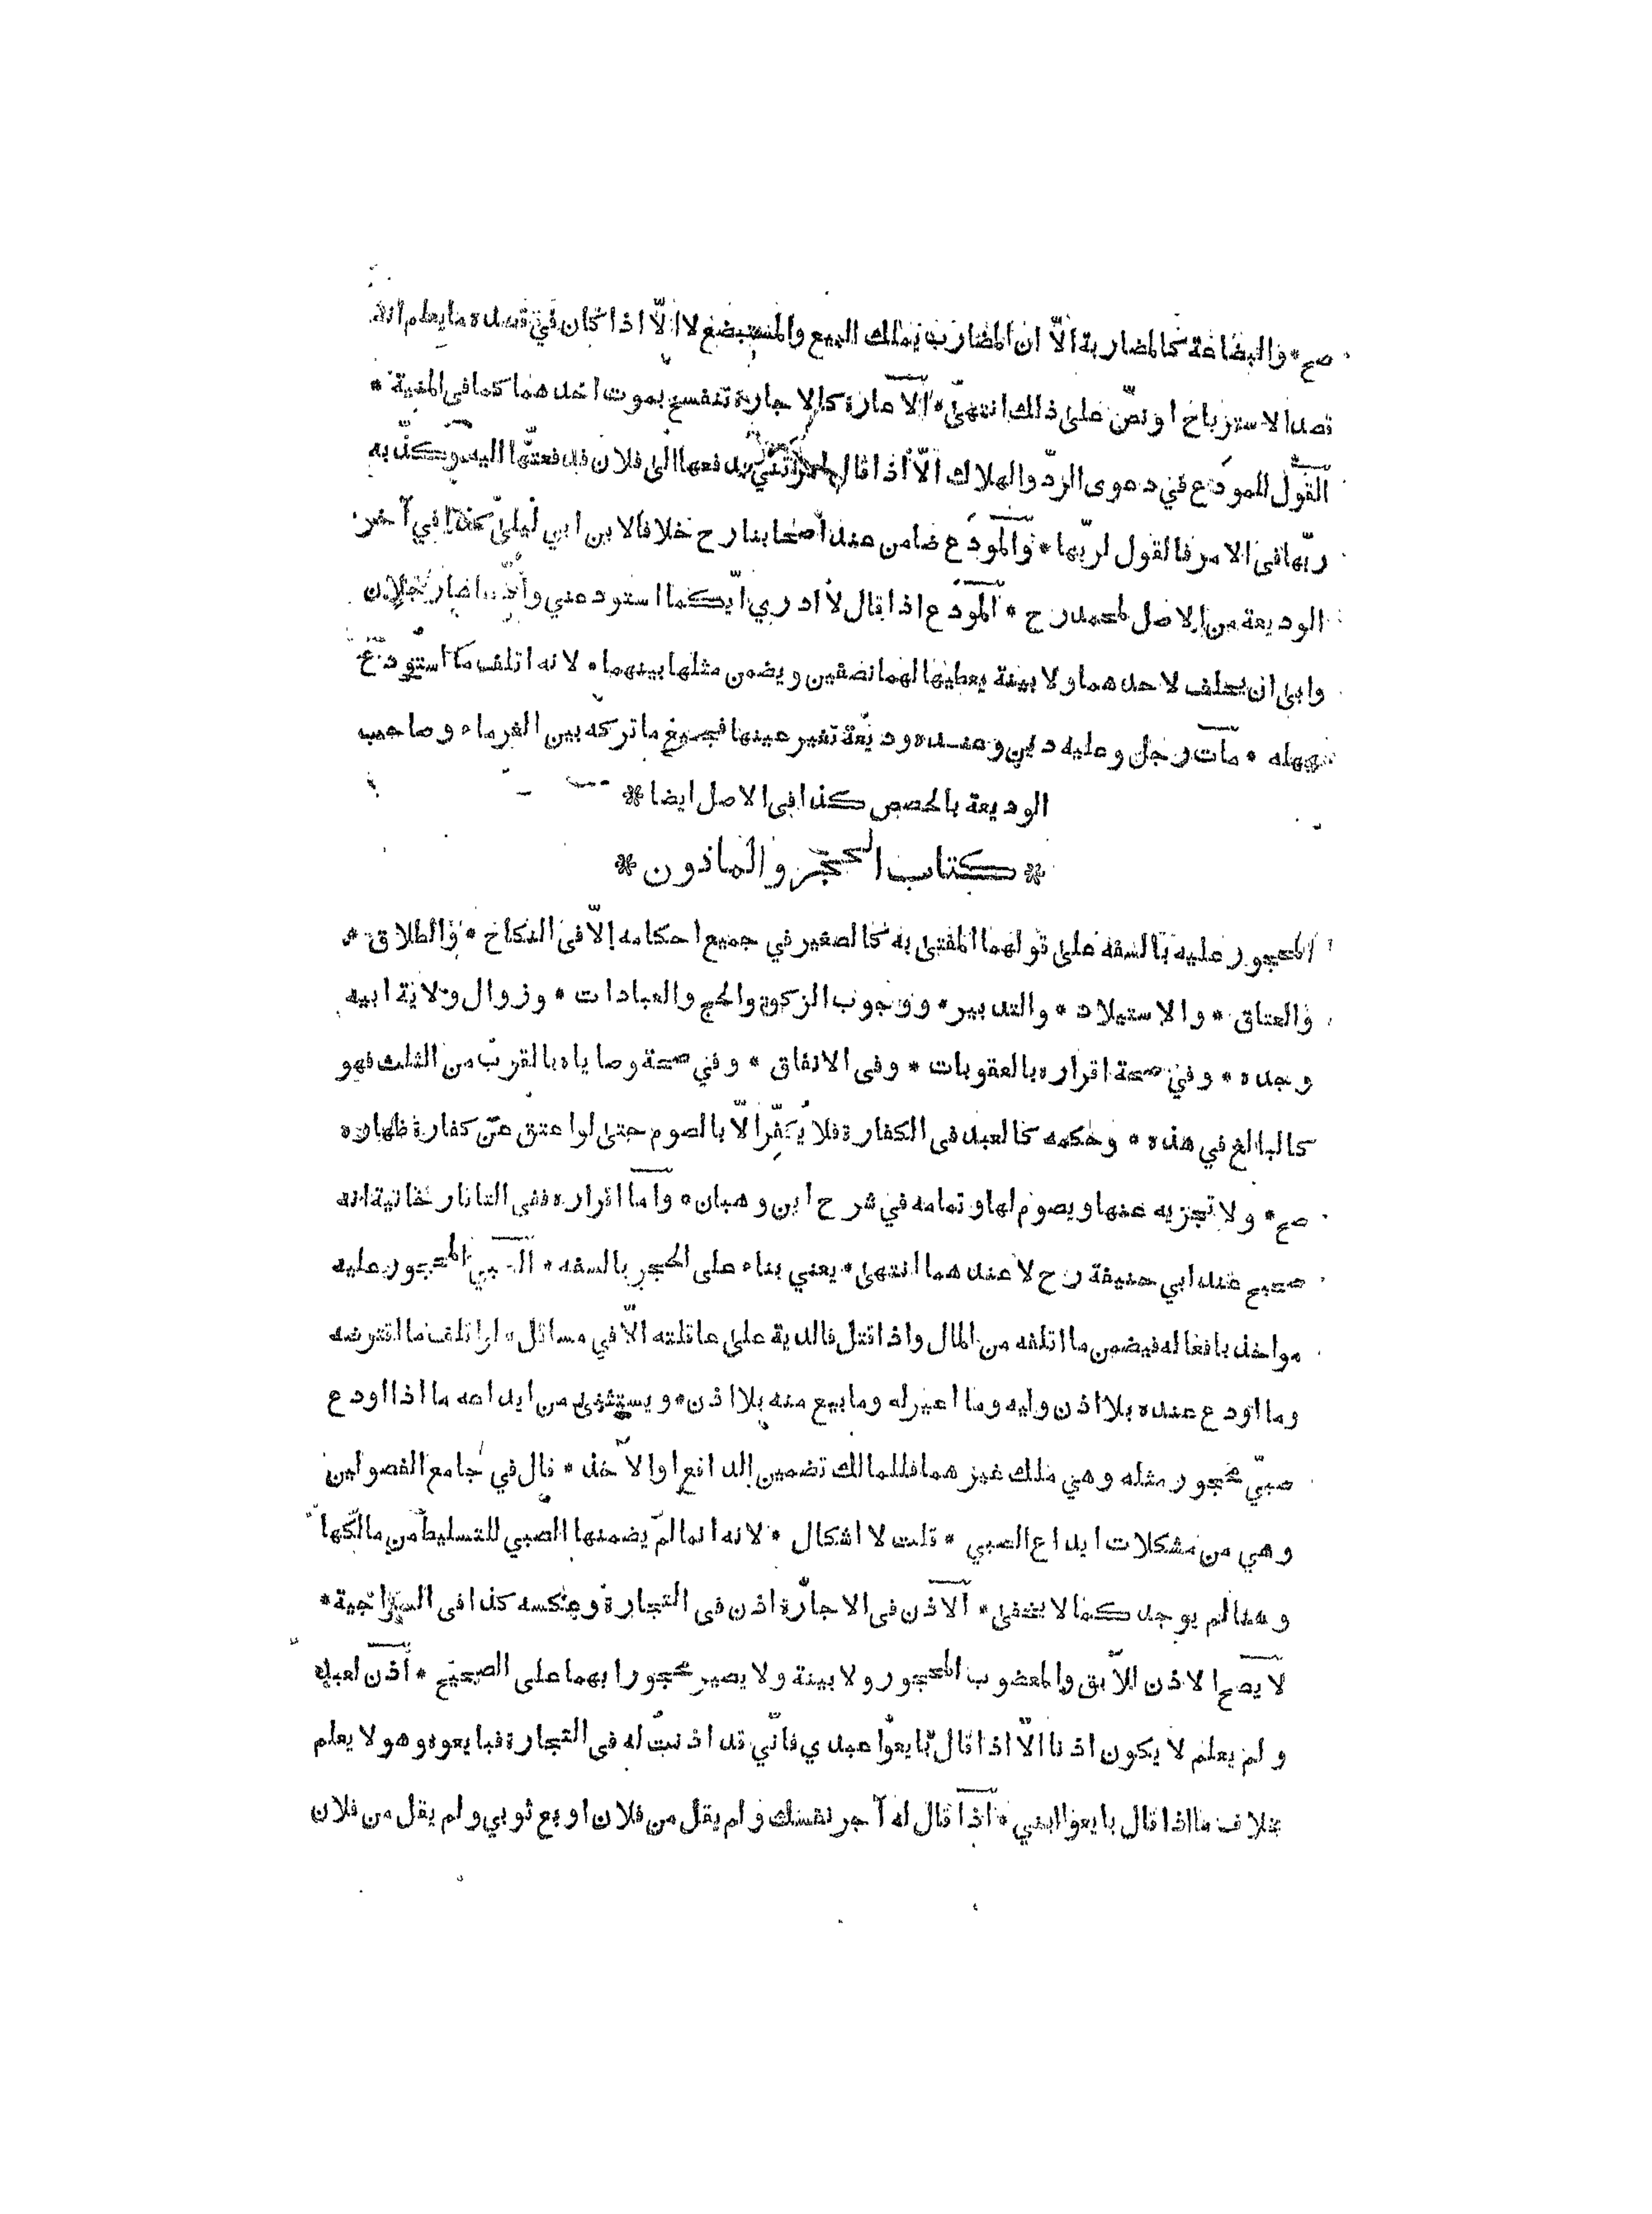 صح * والبضاعة كالمضاربة الّا ان المضارب يملك البيع والمستبضع لا الّا اذا كان في قصده ما يعلم انه
قصد الاسترباح او نصّ على ذلك انتهى * الاعارة كالاجارة تنفسخ بموت احدهما كما فى المنية *
القول للمودَع في دعوى الردّ والهلاك الّا اذا قال امرتني بدفعها الى فلان فدفعتها اليه وكذّبه
ربّها فى الامر فالقول لربّها * والمودَع ضامن عند اصحابنا رح خلافا لابن ابي ليلى كذا في آخر
الوديعة من الاصل لمحمد رح * المودَع اذا قال لا ادري ايّكما استودعني وادّعاها رجلان
وابى ان يحلف لاحدهما ولا بينة يعطيها لهما نصفين ويضمن مثلها بينهما * لانه اتلف ما استودع
بجهله * مات رجل وعليه دين وعنده وديعة بغير عينها فجميع ما تركه بين الغرماء وصاحب
الوديعة بالحصص كذا فى الاصل ايضا *
* كتاب الحجر والماذون *
المحجور عليه بالسفه على قولهما المفتى به كالصغير في جميع احكامه إلّا فى النكاح * والطلاق *
والعتاق * والاستيلاد * والتدبير * ووجوب الزكوة والحج والعبادات * وزوال ولاية ابيه
وجده * وفي صحة اقراره بالعقوبات * وفى الانفاق * وفي صحة وصاياه بالقرب من الثلث فهو
كالبالغ في هذه * وحكمه كالعبد فى الكفارة فلا يكفّر الّا بالصوم حتى لو اعتق عن كفارة ظهاره
صح * ولا تجزيه عنها ويصوم لها وتمامه في شرح ابن وهبان * واما اقراره ففى التاتارخانية انه
صحيح عند ابي حنيفة رح لا عندهما انتهى * يعني بناء على الحجر بالسفه * الصبي المحجور عليه
مواخذ بافعاله فيضمن ما اتلفه من المال واذا قتل فالدية على عاقلته الّا في مسائل * لو اتلف ما اقترضه
وما اودع عنده بلا اذن وليه وما اعير له وما بيع منه بلا اذن * ويستثنى من ايداعه ما اذا اودع
صبيّ محجور مثله وهي ملك غيرهما فللمالك تضمين الدافع او الآخذ * قال في جامع الفصولين
وهي من مشكلات ايداع الصبي * قلت لا اشكال * لانه انما لم يضمنها الصبي للتسليط من مالكها
وهنا لم يوجد كما لا يخفى * الاذن فى الاجارة اذن فى التجارة وعكسه كذا فى السراجية *
لا يصح الاذن للآبق والمغصوب المحجور ولا بينة ولا يصير محجورا بهما على الصحيح * أذن لعبده
ولم يعلم لا يكون اذنا الّا اذا قال بايعوا عبدي فانّي قد اذنت له فى التجارة فبايعوه وهو لا يعلم
بخلاف ما اذا قال بايعوا ابني * اذا قال له آجر نفسك ولم يقل من فلان او بع ثوبي ولم يقل من فلان